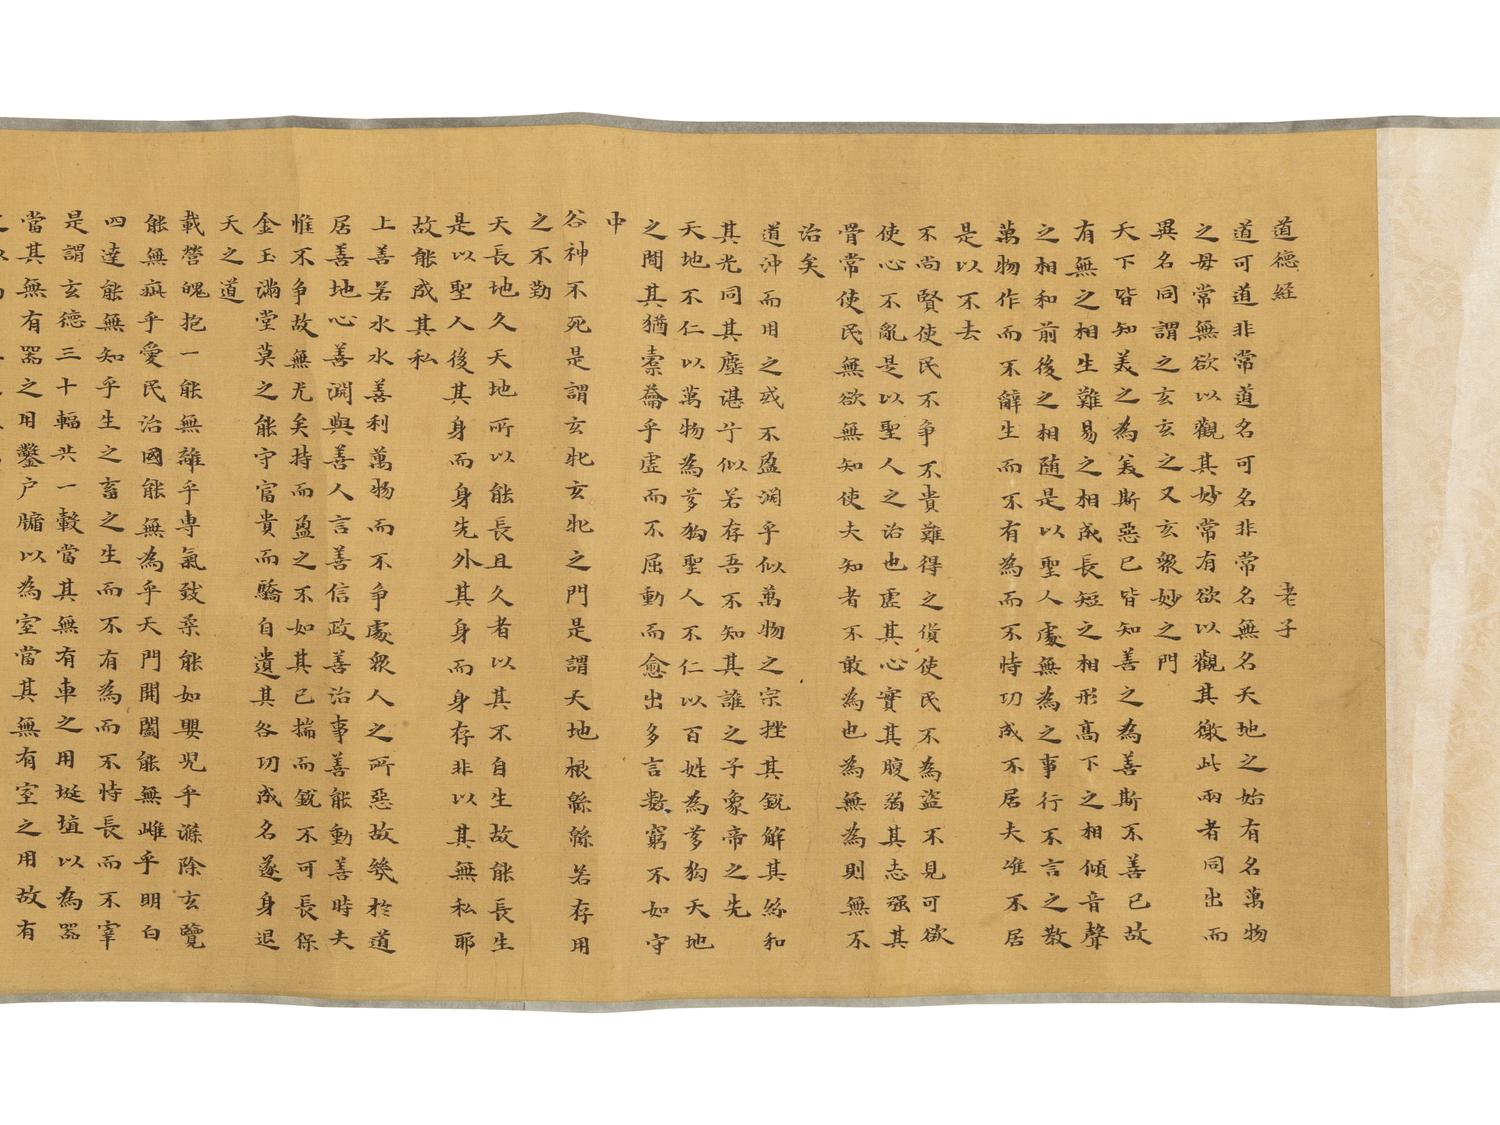 道德経 老子
道可道非常道名可名非常名無名天地之始有名萬物
之母常無欲以觀其妙常有欲以觀其徼此兩者同出而
異名同謂之玄玄之又玄衆妙之門
天下皆知美之為美斯惡已皆知善之為善斯不善已故
有無之相生難易之相成長短之相形高下之相傾音聲
之相和前後之相随是以聖人處無為之事行不言之教
萬物作而不辭生而不有為而不恃功成不居夫唯不居
是以不去
不尚賢使民不争不貴難得之貨使民不為盜不見可欲
使心不亂是以聖人之治也虛其心實其腹弱其志强其
骨常使民無欲無知使夫知者不敢為也為無為則無不
治矣
道沖而用之或不盈淵乎似萬物之宗挫其鋭解其紛和
其光同其塵湛兮似若存吾不知其誰之子象帝之先
天地不仁以萬物為芻狗聖人不仁以百姓為芻狗天地
之間其猶橐籥乎虛而不屈動而愈出多言數窮不如守
中
谷神不死是謂玄牝玄牝之門是謂天地根緜緜若存用
之不勤
天長地久天地所以能長且久者以其不自生故能長生
是以聖人後其身而身先外其身而身存非以其無私耶
故能成其私
上善若水水善利萬物而不争處衆人之所惡故幾於道
居善地心善淵與善人言善信政善治事善能動善時夫
惟不争故無尤矣持而盈之不如其已揣而鋭不可長保
金玉滿堂莫之能守富貴而驕自遺其咎功成名遂身退
天之道
載營魄抱一能無離乎専氣致柔能如嬰児乎滌除玄覽
能無疵乎愛民治國能無為乎天門開闔能無雌乎明白
四達能無知乎生之畜之生而不有為而不恃長而不宰
是謂玄德三十輻共一轂當其無有車之用埏埴以為器
當其無有器之用鑿户牖以為室當其無有室之用故有